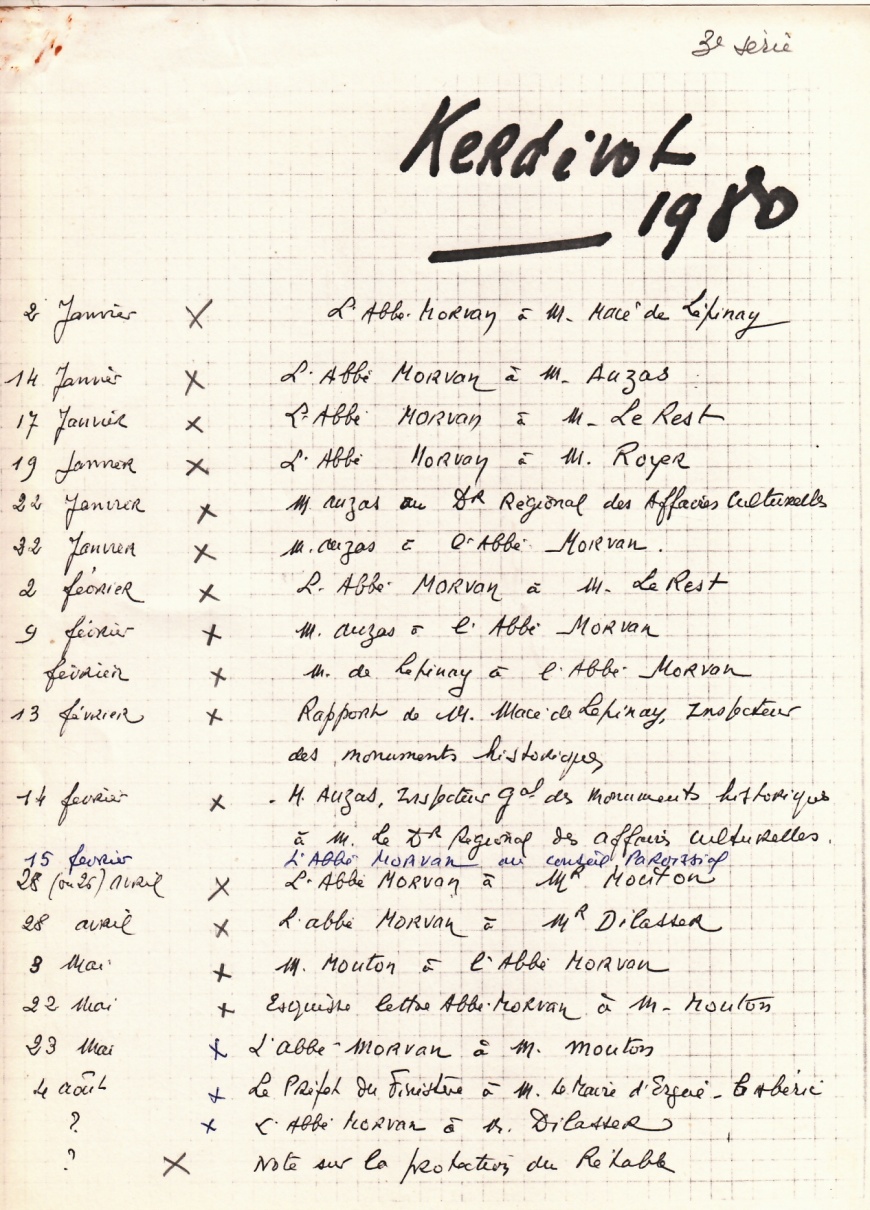 3e série
Kerdévot
1980
2 Janvier × L'Abbé MORVAN à M. Macé de Lépinay
14 Janvier × L'Abbé MORVAN à M. Auzas
17 Janvier × L'Abbé MORVAN à M. Le Rest
19 Janvier × L'Abbé Morvan à M. Royer
22 Janvier × M. Auzas au DR Régional des Affaires Culturelles
22 Janvier × M. Auzas à l'Abbé MORVAN.
2 février × L'Abbé MORVAN à M. Le Rest
9 février × M. Auzas à l'Abbé MORVAN
février × M. de Lépinay à l'Abbé MORVAN
13 février × Rapport de M. Macé de Lépinay, Inspecteur
des monuments historiques
14 février × - M. Auzas, Inspecteur gal des Monuments historiques
à M. le DR Régional des affaires culturelles.
15 fevrier L'Abbé MORVAN au conseil Paroissial
28 (ou 25) avril × L'Abbé MORVAN à MR MOUTON
28 avril × L'abbé MORVAN à MR Dilasser
3 Mai × M. Mouton à l'Abbé MORVAN
22 Mai × Esquisse lettre Abbé MORVAN à M. Mouton
23 Mai × L'abbé MORVAN à M. Mouton
4 août × Le Préfet du Finistère à M. le Maire d'Ergué-Gabéric
? × L'Abbé MORVAN à M. Dilasser
? × Note sur la protection du Rétable